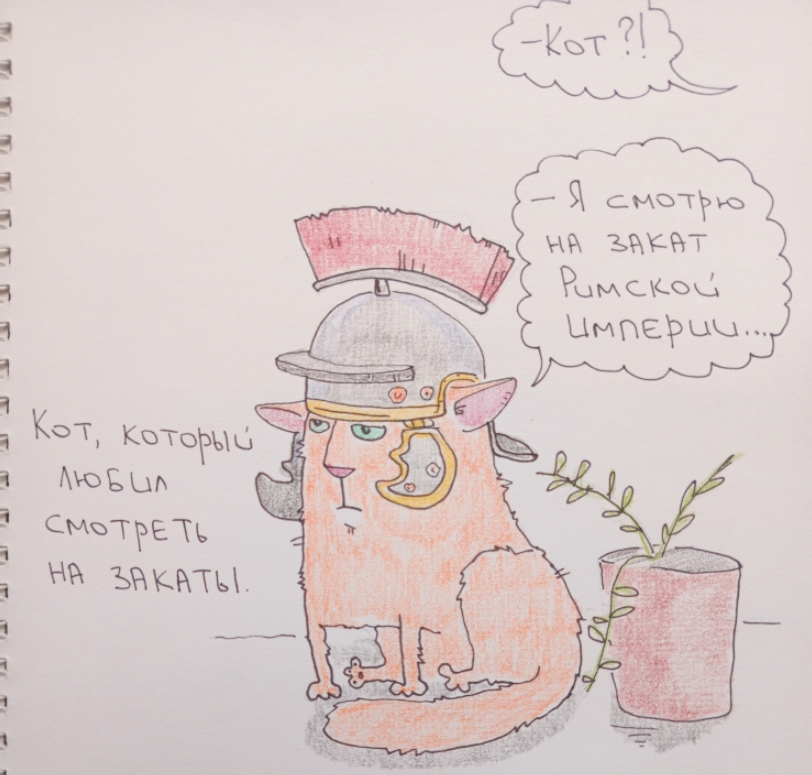 -Кот?!
- Я смотрю
на закат
Римской
империи...
Кот, который
любил
смотреть
на закаты.